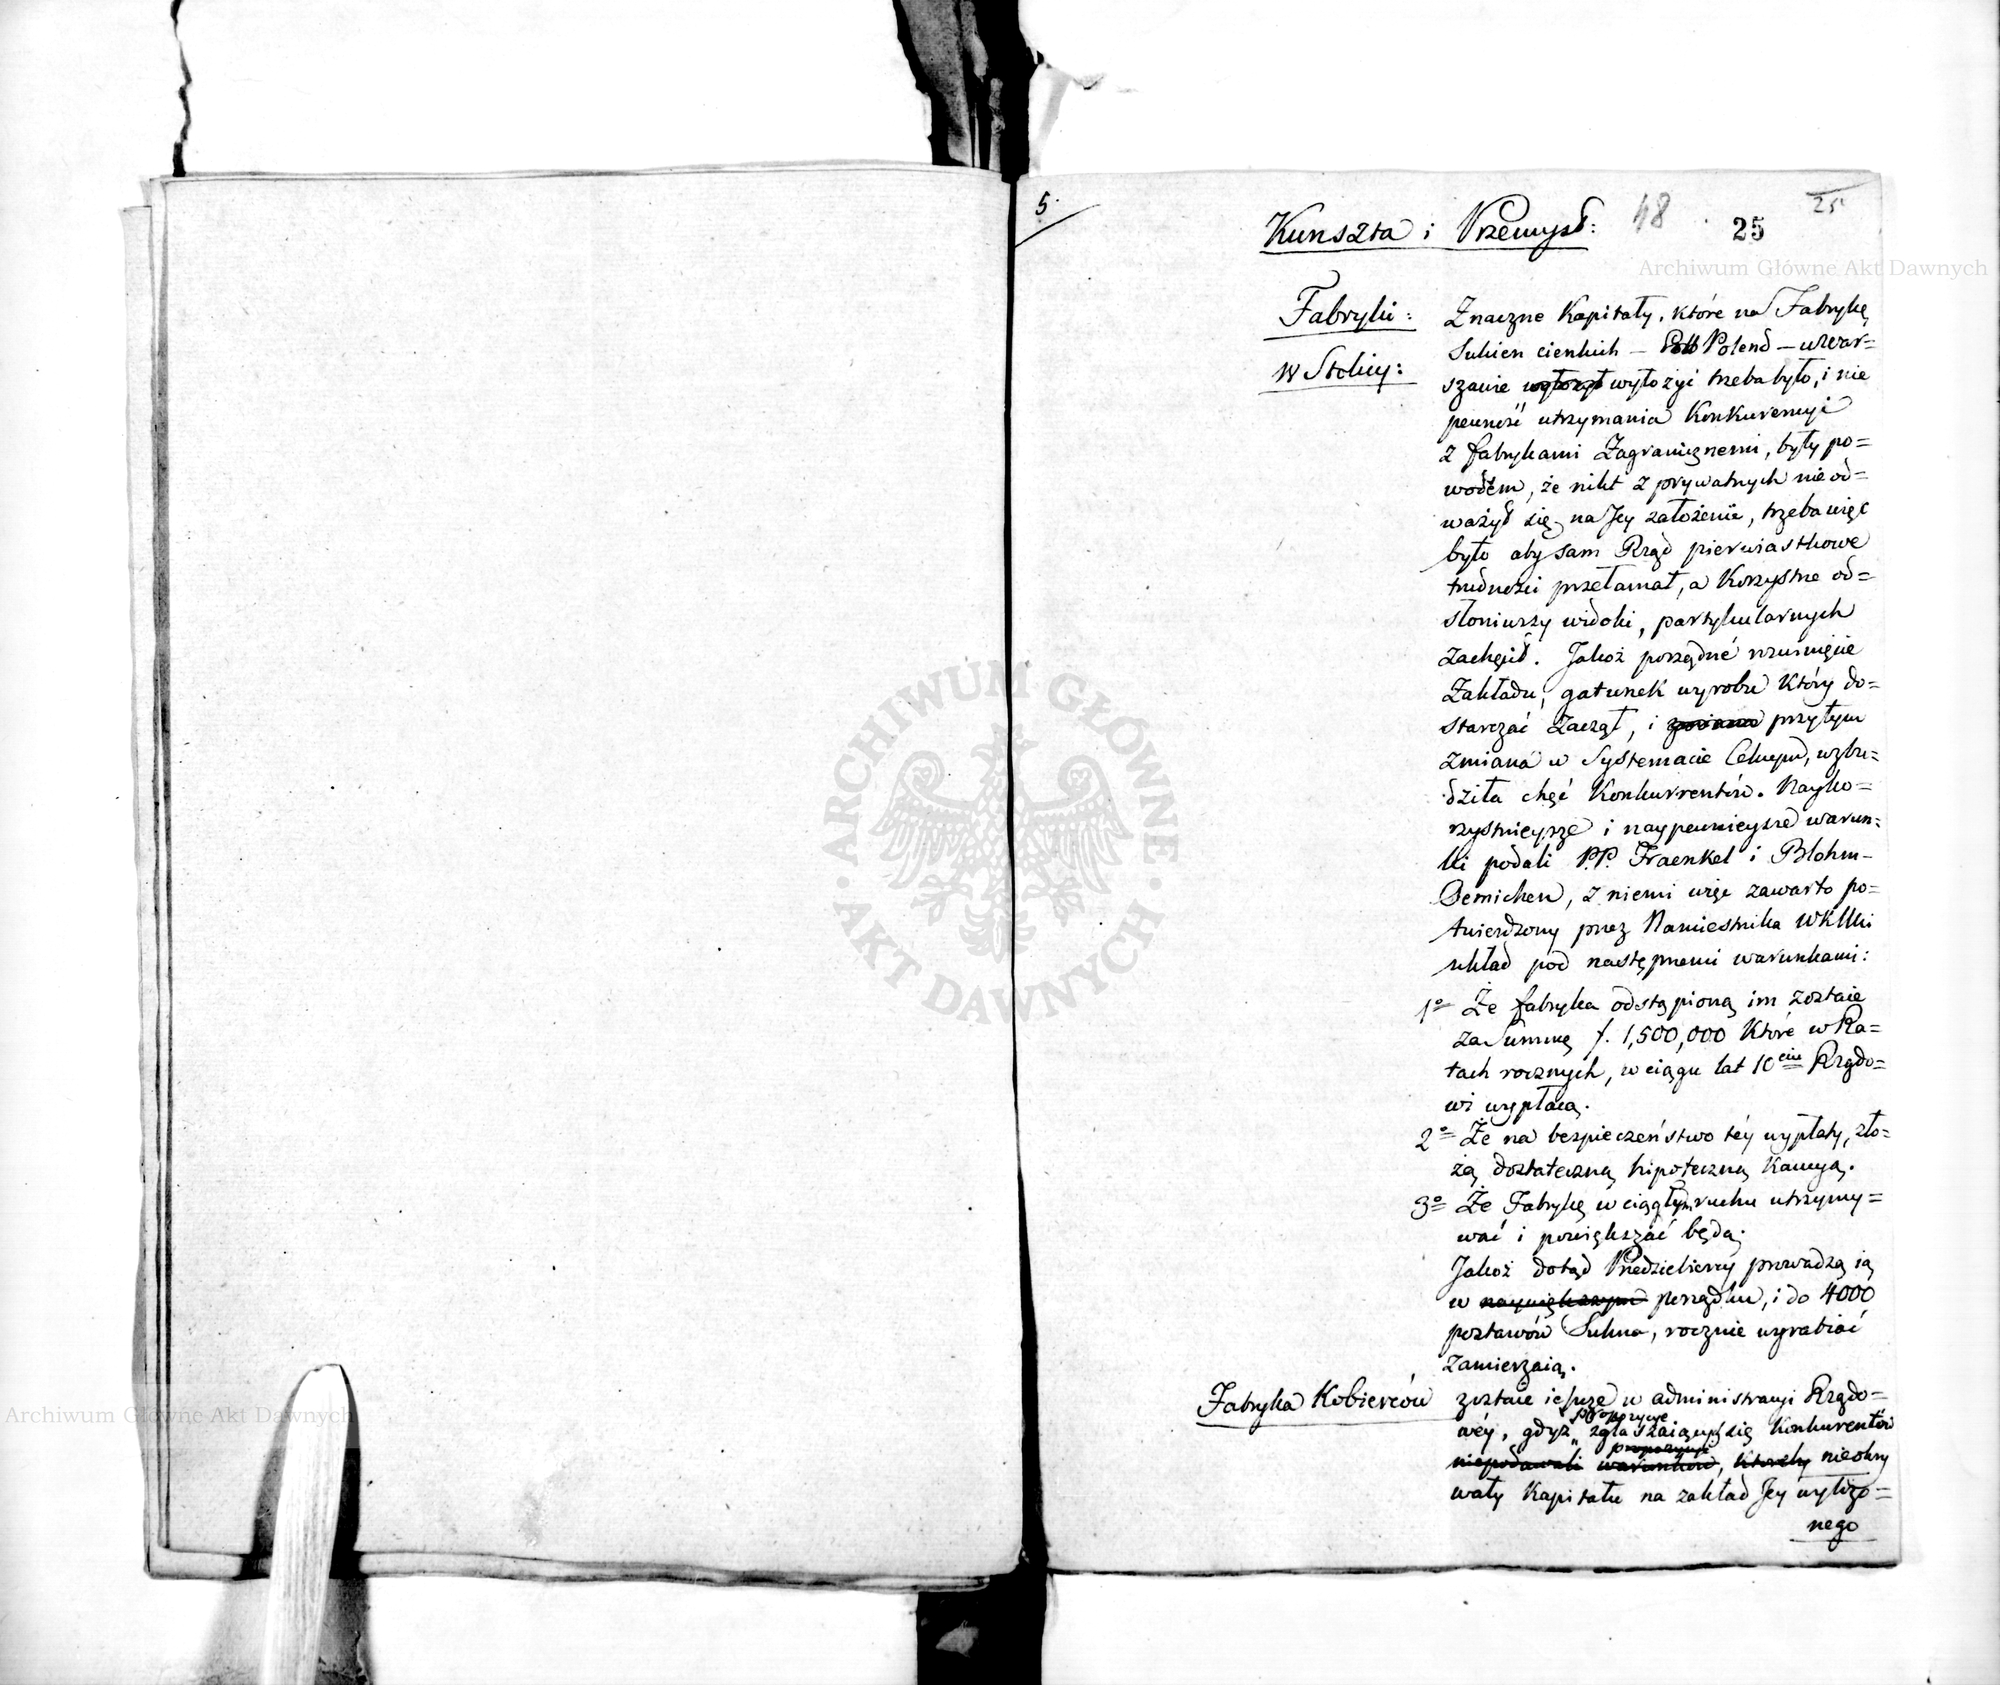 5.
Kunszta i Przemysł: 48 25 25
Archiwum Główne Akt Dawnych
Fabryki:
w Stolicy:
Znaczne Kapitały, które na Fabrykę
Sukien cienkich – Poll Polend – w War=
szawie wyłożył wyłożyć trzeba było, i nie
pewność utrzymania Konkurencyi
z fabrykami Zagranicznemi, były po=
wodem, że nikt z prywatnych nie od=
ważył się na Jey założenie, trzeba więc
było aby sam Rząd pierwiastkowe
trudności przełamał, a Korzystne od=
słoniwszy widoki, partykularnych
zachęcił. Jakoż porządne wzniesięcie
Zakładu, gatunek wyrobu który do=
starczać Zaczął, i przytym
zmiana w Systemacie Celnym, wzbu=
dziła chęć Konkurrentów. Nayko=
rzystnieysze i naypewnieysze warun=
ki podali P.P. Fraenkel i Blohm-
Demichen, z niemi więc zawarto po=
twierdzony przez Namiestnika WKMki
układ pod następnemi warunkami:
1º Że fabryka odstąpioną im zostaie
za Summę f. 1,500,000 Które w Ra=
tach rocznych, w ciągu lat 10ciu Rządo=
wi wypłacą.
2º Że na bezpieczeństwo téy wypłaty, zło=
żą dostateczną hipoteczną Kaucyą.
3º Że Fabrykę w ciągłym ruchu utrzymy=
wać i powiększać będą.
Jakoż dotąd Przedsiebiercy prowadzą ią
w naywiększym porządku, i do 4000
postawów Sukna, rocznie wyrabiać
Zamierzaią.
Fabryka Kobierców zostaie ieszcze w administracyi Rządo=
propozycye
wéy, gdyż zgłaszaiących się Konkurentów
propozycyi
niepodawali warunków, któreby nieokry
wały Kapitału na zakład Jey wyłożo=
nego
ARCHIWUM GŁÓWNE AKT DAWNYCH
Archiwum Główne Akt Dawnych